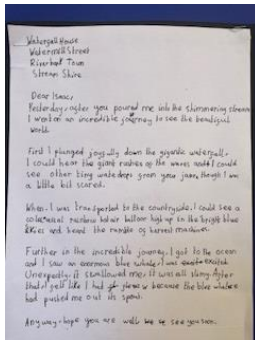 Watergall House
Watermill Street
Riverboat Town
Stream Shire
Dear Isaac,
Yesterday, after you poured me into the shimmering stream
I went on an incredible journey to see the beautiful
world.
First I plunged joyfully down the gigantic waterfall.
I could hear the giant rushes of the waves and I could
see other tiny waterdrops from your jam, though I was
a little bit scared.
When I was transported to the countryside, I could see a
colossal rainbow hotair balloon high up in the bright blue
skies and heard the rumble of harvest machines.
Further in the incredible journey, I got to the ocean
and I saw an enormous blue whale. I was excited
Unexpedly, it swallowed me. It was all slimy. After
that I felt like I had because the blue whale
had pushed me out its spout.
Anyway, hope you are well. see you soon.